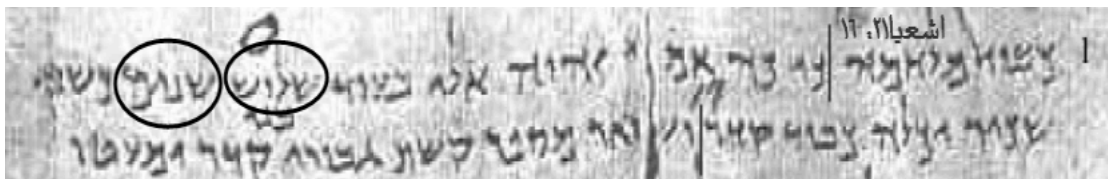 اشعيا٢١: ١٦
1 כבוד מלחמה כי כה אמר יהוה אלי בעוד שלוש שנים כשני
בני
שכיר וכלה כבוד קדר ושאר מספר קשת גבורי קדר ומעטו